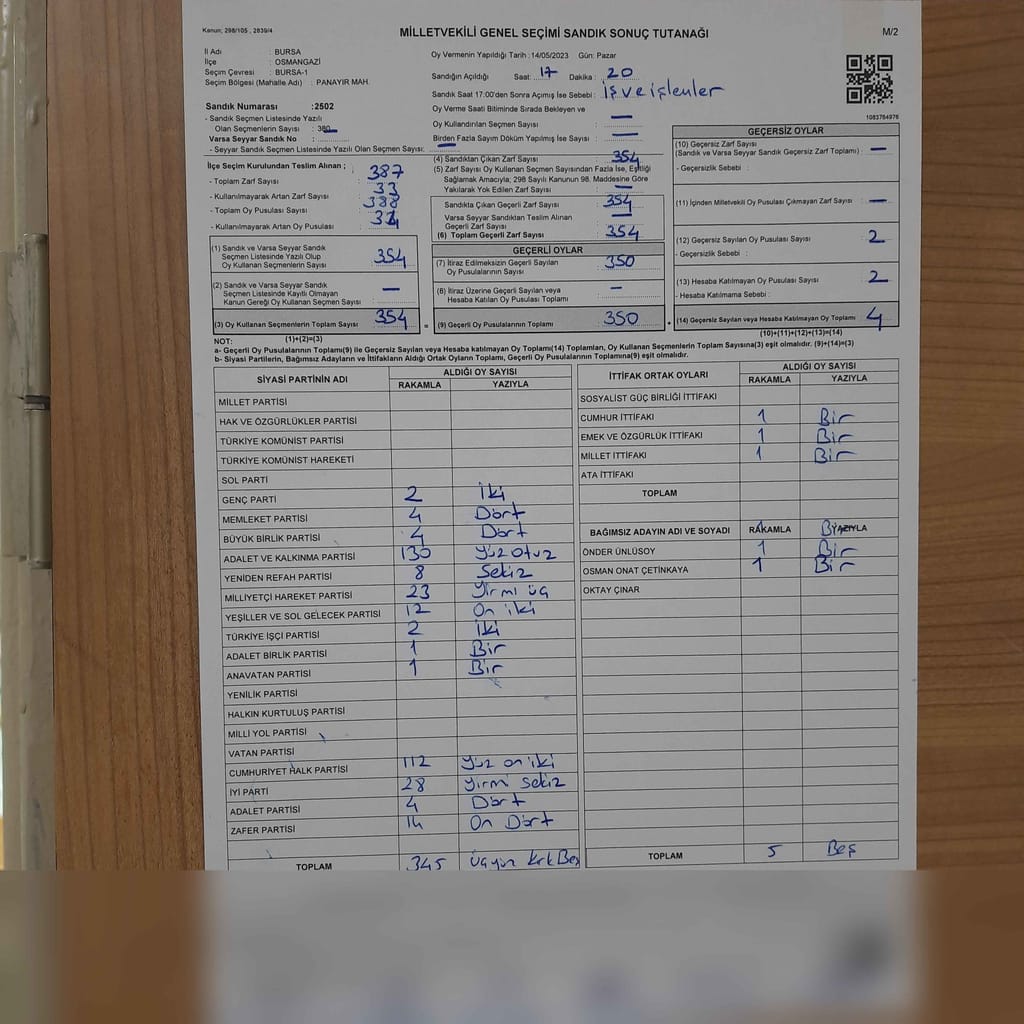 Kanun; 298/105 , 2839/4
MİLLETVEKİLİ GENEL SEÇİMİ SANDIK SONUÇ TUTANAĞI
M/2
İl Adı : BURSA
İlçe : OSMANGAZİ
Seçim Çevresi : BURSA-1
Seçim Bölgesi (Mahalle Adı) : PANAYIR MAH.
Sandık Numarası :2502
- Sandık Seçmen Listesinde Yazılı
Olan Seçmenlerin Sayısı : 380
Varsa Seyyar Sandık No : —
- Seyyar Sandık Seçmen Listesinde Yazılı Olan Seçmen Sayısı: —
Oy Vermenin Yapıldığı Tarih : 14/05/2023 Gün: Pazar
Sandığın Açıldığı Saat: 17 Dakika : 20
Sandık Saat 17:00'den Sonra Açımış İse Sebebi : iş ve işlemler
Oy Verme Saati Bitiminde Sırada Bekleyen ve
Oy Kullandırılan Seçmen Sayısı : —
Birden Fazla Sayım Döküm Yapılmış İse Sayısı : —
1083764976
İlçe Seçim Kurulundan Teslim Alınan ;
- Toplam Zarf Sayısı : 387
- Kullanılmayarak Artan Zarf Sayısı : 33
- Toplam Oy Pusulası Sayısı : 388
- Kullanılmayarak Artan Oy Pusulası :
(1) Sandık ve Varsa Seyyar Sandık
Seçmen Listesinde Yazılı Olup
Oy Kullanan Seçmenlerin Sayısı 354
(2) Sandık ve Varsa Seyyar Sandık
Seçmen Listesinde Kayıtlı Olmayan
Kanun Gereği Oy Kullanan Seçmen Sayısı —
(3) Oy Kullanan Seçmenlerin Toplam Sayısı 354
(4) Sandıktan Çıkan Zarf Sayısı : 354
(5) Zarf Sayısı Oy Kullanan Seçmen Sayısından Fazla İse, Eşitliği
Sağlamak Amacıyla; 298 Sayılı Kanunun 98. Maddesine Göre
Yakılarak Yok Edilen Zarf Sayısı : —
Sandıkta Çıkan Geçerli Zarf Sayısı : 354
Varsa Seyyar Sandıktan Teslim Alınan
Geçerli Zarf Sayısı : —
(6) Toplam Geçerli Zarf Sayısı : 354
GEÇERLİ OYLAR
(7) İtiraz Edilmeksizin Geçerli Sayılan
Oy Pusulalarının Sayısı : 350
(8) İtiraz Üzerine Geçerli Sayılan veya
Hesaba Katılan Oy Pusulası Toplamı : —
= (9) Geçerli Oy Pusulalarının Toplamı 350
GEÇERSİZ OYLAR
(10) Geçersiz Zarf Sayısı
(Sandık ve Varsa Seyyar Sandık Geçersiz Zarf Toplamı) : —
- Geçersizlik Sebebi :
(11) İçinden Milletvekili Oy Pusulası Çıkmayan Zarf Sayısı : —
(12) Geçersiz Sayılan Oy Pusulası Sayısı : 2
- Geçersizlik Sebebi :
(13) Hesaba Katılmayan Oy Pusulası Sayısı : 2
- Hesaba Katılmama Sebebi :
+ (14) Geçersiz Sayılan veya Hesaba Katılmayan Oy Toplamı 4
NOT: (1)+(2)=(3) (10)+(11)+(12)+(13)=(14)
a- Geçerli Oy Pusulalarının Toplamı(9) ile Geçersiz Sayılan veya Hesaba katılmayan Oy Toplamı(14) Toplamları, Oy Kullanan Seçmenlerin Toplam Sayısına(3) eşit olmalıdır. (9)+(14)=(3)
b- Siyasi Partilerin, Bağımsız Adayların ve İttifakların Aldığı Ortak Oyların Toplamı, Geçerli Oy Pusulalarının Toplamına(9) eşit olmalıdır.
SİYASİ PARTİNİN ADI
ALDIĞI OY SAYISI
RAKAMLA YAZIYLA
MİLLET PARTİSİ
HAK VE ÖZGÜRLÜKLER PARTİSİ
TÜRKİYE KOMÜNİST PARTİSİ
TÜRKİYE KOMÜNİST HAREKETİ
SOL PARTİ
GENÇ PARTİ 2 iki
MEMLEKET PARTİSİ 4 Dört
BÜYÜK BİRLİK PARTİSİ 4 Dört
ADALET VE KALKINMA PARTİSİ 130 yüz otuz
YENİDEN REFAH PARTİSİ 8 Sekiz
MİLLİYETÇİ HAREKET PARTİSİ 23 yirmi üç
YEŞİLLER VE SOL GELECEK PARTİSİ 12 On iki
TÜRKİYE İŞÇİ PARTİSİ 2 iki
ADALET BİRLİK PARTİSİ 1 Bir
ANAVATAN PARTİSİ 1 Bir
YENİLİK PARTİSİ
HALKIN KURTULUŞ PARTİSİ
MİLLİ YOL PARTİSİ
VATAN PARTİSİ
CUMHURİYET HALK PARTİSİ 112 yüz on iki
İYİ PARTİ 28 yirmi sekiz
ADALET PARTİSİ 4 Dört
ZAFER PARTİSİ 14 On Dört
TOPLAM 345 üçyüz kırk Beş
İTTİFAK ORTAK OYLARI
ALDIĞI OY SAYISI
RAKAMLA YAZIYLA
SOSYALİST GÜÇ BİRLİĞİ İTTİFAKI
CUMHUR İTTİFAKI 1 Bir
EMEK VE ÖZGÜRLÜK İTTİFAKI 1 Bir
MİLLET İTTİFAKI 1 Bir
ATA İTTİFAKI
TOPLAM
BAĞIMSIZ ADAYIN ADI VE SOYADI RAKAMLA YAZIYLA
ÖNDER ÜNLÜSOY 1 Bir
OSMAN ONAT ÇETİNKAYA 1 Bir
OKTAY ÇINAR
TOPLAM 5 Beş